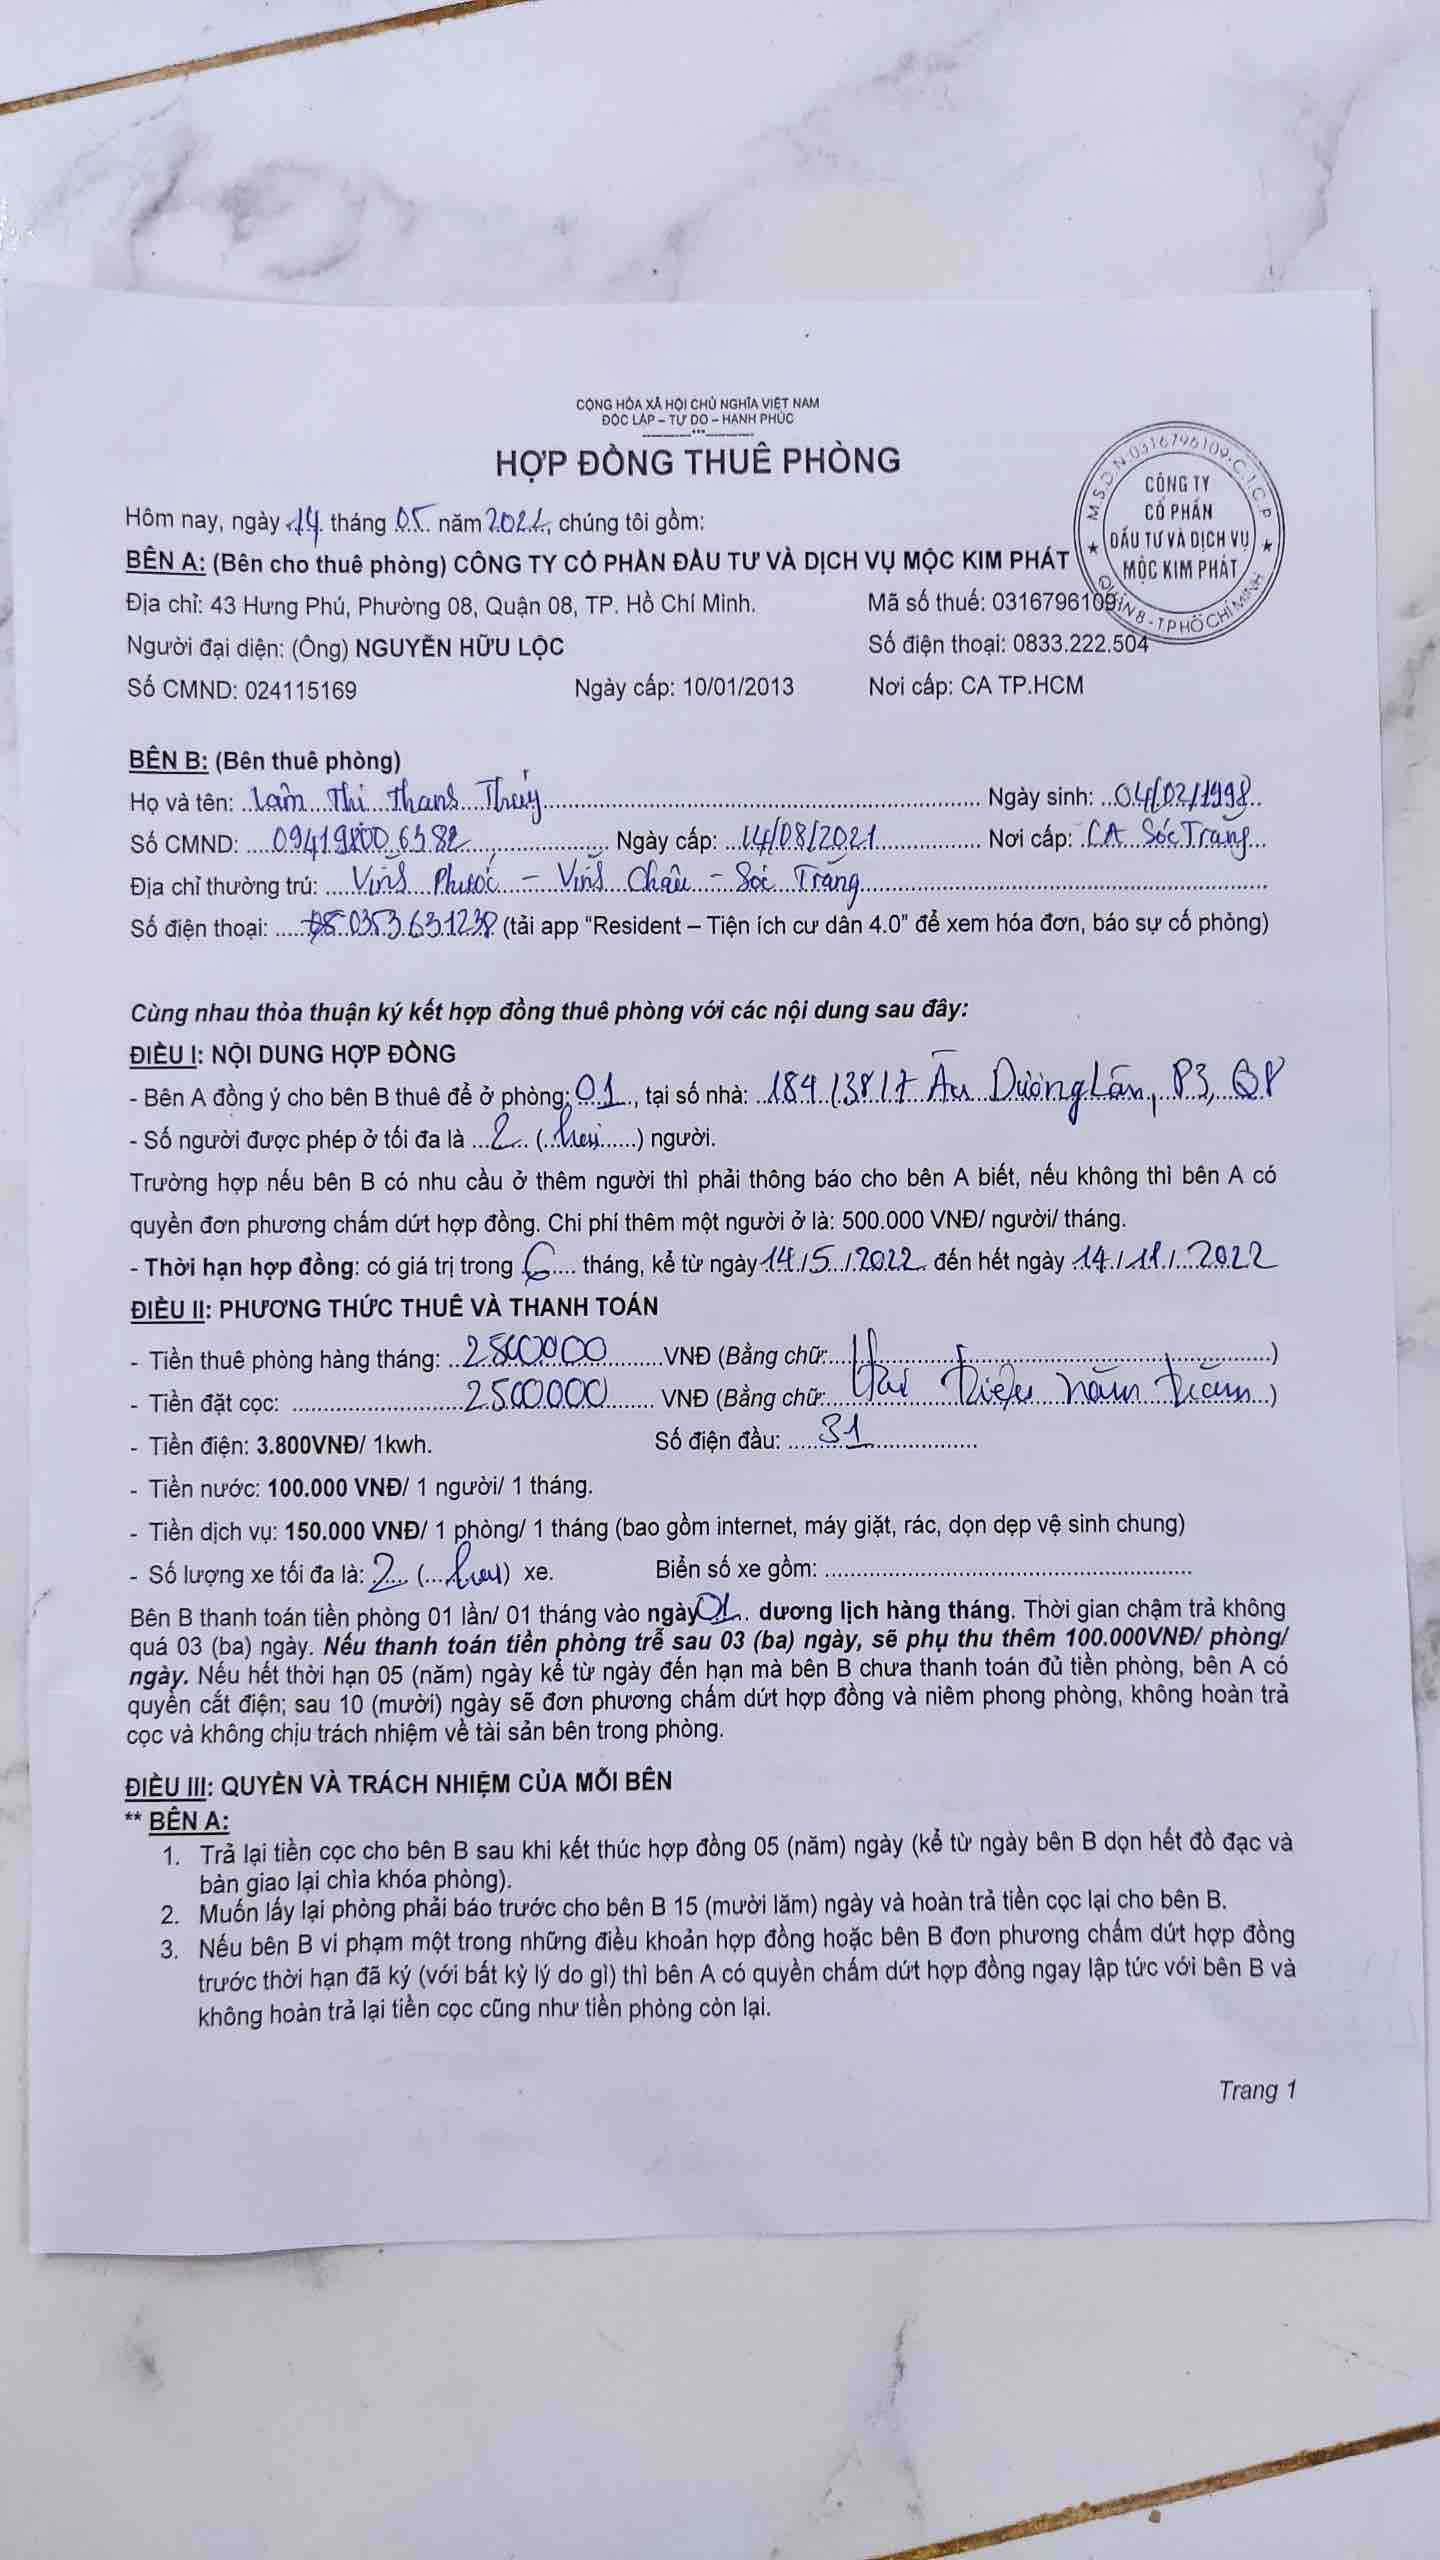 CỘNG HÒA XÃ HỘI CHỦ NGHĨA VIỆT NAM
ĐỘC LẬP – TỰ DO – HẠNH PHÚC
----------***----------
HỢP ĐỒNG THUÊ PHÒNG
M.S.D.N:0316796109-C.T.C.P
CÔNG TY
CỔ PHẦN
ĐẦU TƯ VÀ DỊCH VỤ
MỘC KIM PHÁT
QUẬN 8 - T.P HỒ CHÍ MINH
Hôm nay, ngày 14 tháng 05 năm 2022, chúng tôi gồm:
BÊN A: (Bên cho thuê phòng) CÔNG TY CỔ PHẦN ĐẦU TƯ VÀ DỊCH VỤ MỘC KIM PHÁT
Địa chỉ: 43 Hưng Phú, Phường 08, Quận 08, TP. Hồ Chí Minh. Mã số thuế: 0316796109
Người đại diện: (Ông) NGUYỄN HỮU LỘC Số điện thoại: 0833.222.504
Số CMND: 024115169 Ngày cấp: 10/01/2013 Nơi cấp: CA TP.HCM
BÊN B: (Bên thuê phòng)
Họ và tên: Lâm Thị Thanh Thúy Ngày sinh: 04/02/1998
Số CMND: Ngày cấp: 14/08/2021 Nơi cấp: CA Sóc Trăng
Địa chỉ thường trú: Vĩnh Phước - Vĩnh Châu - Sóc Trăng
Số điện thoại: 0353.631238 (tải app “Resident – Tiện ích cư dân 4.0” để xem hóa đơn, báo sự cố phòng)
Cùng nhau thỏa thuận ký kết hợp đồng thuê phòng với các nội dung sau đây:
ĐIỀU I: NỘI DUNG HỢP ĐỒNG
- Bên A đồng ý cho bên B thuê để ở phòng: 01, tại số nhà: 184/38/7 Âu Dương Lân, P3, Q8
- Số người được phép ở tối đa là 2 (hai) người.
Trường hợp nếu bên B có nhu cầu ở thêm người thì phải thông báo cho bên A biết, nếu không thì bên A có
quyền đơn phương chấm dứt hợp đồng. Chi phí thêm một người ở là: 500.000 VNĐ/ người/ tháng.
- Thời hạn hợp đồng: có giá trị trong 6 tháng, kể từ ngày 14/5/2022 đến hết ngày 14/11/2022
ĐIỀU II: PHƯƠNG THỨC THUÊ VÀ THANH TOÁN
- Tiền thuê phòng hàng tháng: 2500000 VNĐ (Bằng chữ: )
- Tiền đặt cọc: 2500000 VNĐ (Bằng chữ: Hai triệu năm trăm)
- Tiền điện: 3.800VNĐ/ 1kwh. Số điện đầu: 31
- Tiền nước: 100.000 VNĐ/ 1 người/ 1 tháng.
- Tiền dịch vụ: 150.000 VNĐ/ 1 phòng/ 1 tháng (bao gồm internet, máy giặt, rác, dọn dẹp vệ sinh chung)
- Số lượng xe tối đa là: 2 (hai) xe. Biển số xe gồm:
Bên B thanh toán tiền phòng 01 lần/ 01 tháng vào ngày 01 dương lịch hàng tháng. Thời gian chậm trả không
quá 03 (ba) ngày. Nếu thanh toán tiền phòng trễ sau 03 (ba) ngày, sẽ phụ thu thêm 100.000VNĐ/ phòng/
ngày. Nếu hết thời hạn 05 (năm) ngày kể từ ngày đến hạn mà bên B chưa thanh toán đủ tiền phòng, bên A có
quyền cắt điện; sau 10 (mười) ngày sẽ đơn phương chấm dứt hợp đồng và niêm phong phòng, không hoàn trả
cọc và không chịu trách nhiệm về tài sản bên trong phòng.
ĐIỀU III: QUYỀN VÀ TRÁCH NHIỆM CỦA MỖI BÊN
** BÊN A:
1. Trả lại tiền cọc cho bên B sau khi kết thúc hợp đồng 05 (năm) ngày (kể từ ngày bên B dọn hết đồ đạc và
bàn giao lại chìa khóa phòng).
2. Muốn lấy lại phòng phải báo trước cho bên B 15 (mười lăm) ngày và hoàn trả tiền cọc lại cho bên B.
3. Nếu bên B vi phạm một trong những điều khoản hợp đồng hoặc bên B đơn phương chấm dứt hợp đồng
trước thời hạn đã ký (với bất kỳ lý do gì) thì bên A có quyền chấm dứt hợp đồng ngay lập tức với bên B và
không hoàn trả lại tiền cọc cũng như tiền phòng còn lại.
Trang 1